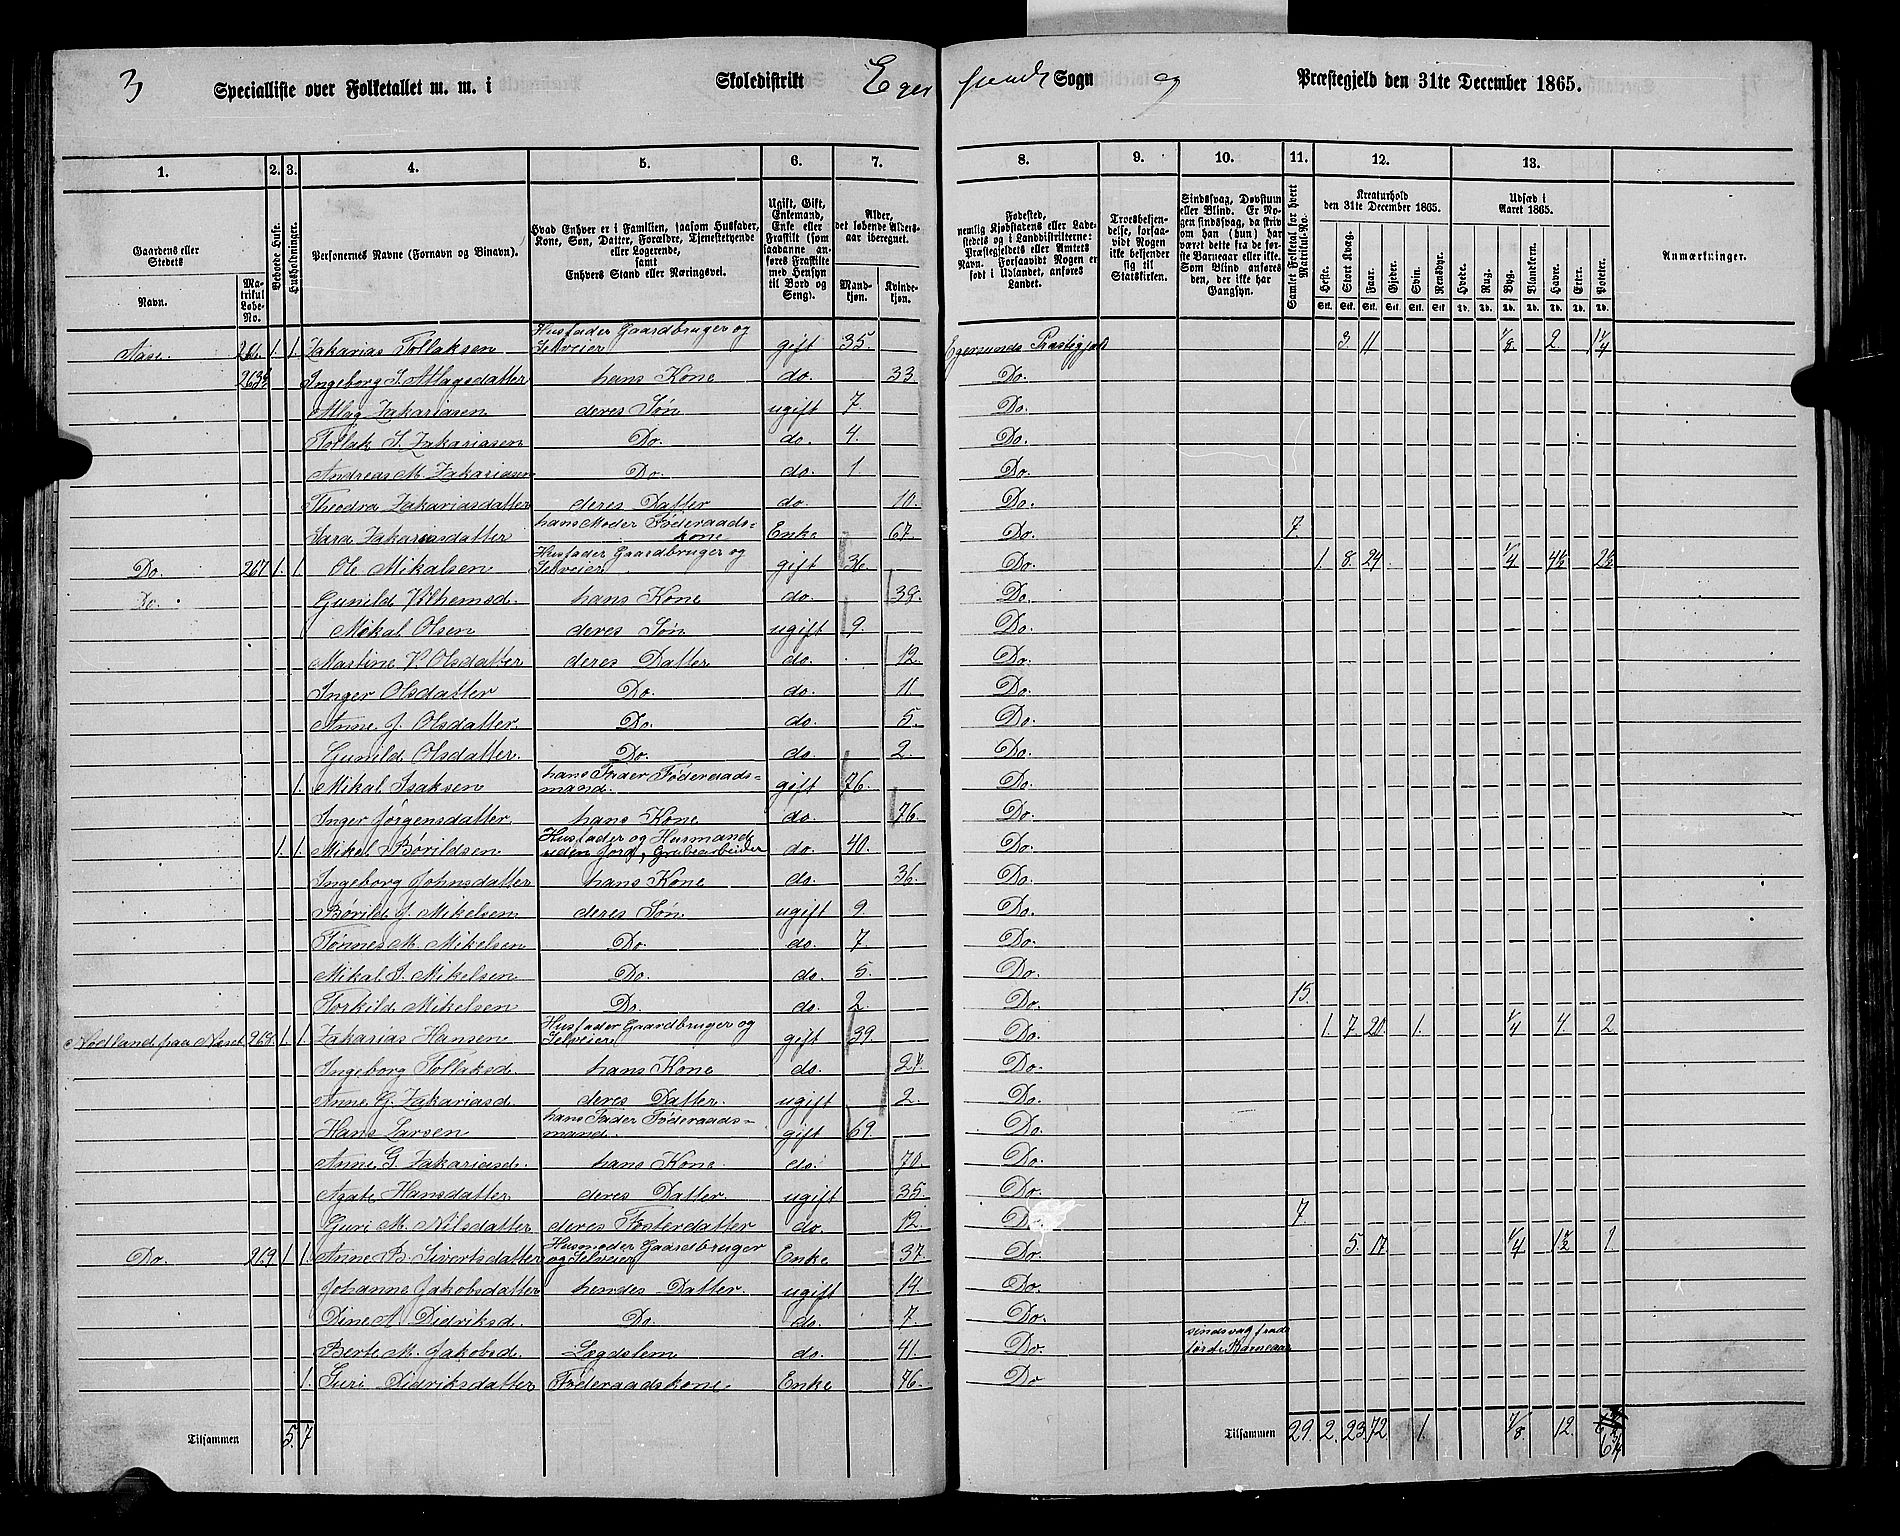 3
Specialliste over Folketallet m. m. i Skoledistrikt Egersunds Sogn og Præstegjeld den 31te December 1865.
1. 2. 3. 4. 5. 6. 7. 8. 9. 10. 11. 12. 13.
Gaardens eller Stedets
Navn.
Matrikul Løbe-No.
Beboede Huse.
Husholdninger.
Personernes Navne (Fornavn og Binavn).
Hvad Enhver er i Familien, saasom Husfader, Kone, Søn, Datter, Forældre, Tjenestetyende eller Logerende, samt Enhvers Stand eller Næringsvei.
Ugift, Gift, Enkemand, Enke eller Fraskilt (som saadanne anføres Fraskilte med Hensyn til Bord og Seng).
Alder, det løbende Aldersaar iberegnet.
Mandkjøn. Kvindekjøn.
Fødested, nemlig Kjøbstadens eller Ladestedets og i Landdistrikterne: Præstegjeldets eller Amtets Navn. Forsaavidt Nogen er født i Udlandet, anføres Landet.
Troesbekjendelse, forsaavidt Nogen ikke bekjender sig til Statskirken.
Sindssvag, Døvstum eller Blind. Er Nogen sindssvag, da skriv om han (hun) har været dette fra de første Barneaar eller ikke. Som Blind anføres den, der ikke har Gangsyn.
Samlet Folketal for hvert Matrikul-No.
Kreaturhold den 31te December 1865.
Heste. Stort Kvæg. Faar. Gjeder. Svin. Rensdyr.
Udsæd i Aaret 1865.
Hvede. Rug. Byg. Blandkorn. Havre. Erter. Poteter.
Anmærkninger.
Aase. 1. 1. Zakarias Tollaksen Husfader Gaardbruger og Selveier gift 35. Egersunds Præstegjeld 3 11 7/8 2. 1 1/4
Ingeborg S. Atlagsdatter hans Kone do. 33. Do.
Atlag Zakariasen deres Søn ugift 7. Do.
Tollak S. Zakariasen Do. do. 4. Do.
Andreas M. Zakariasen Do. do. 1. Do.
Theodra Zakariasdatter deres Datter do. 10. Do.
Sara Zakariasdatter hans Moder Føderaadskone Enke 67. Do. 7.
Do. 267 1. 1. Ole Mikalsen Husfader Gaardbruger og Selveier gift 36. Do. 1. 8. 24. 1/4 4 1/2 2 1/2
Do. Gunild Vilhemsd. hans Kone do. 38. Do.
Mikal Olsen deres Søn ugift 9. Do.
Martine V. Olsdatter deres Datter do. 12. Do.
Inger Olsdatter Do. do. 11 Do.
Anne J. Olsdatter. Do. do. 5. Do.
Gunild Olsdatter. Do. do. 2. Do.
1. Mikal Isaksen hans Fader Føderaadsmand. gift 76. Do.
Inger Jørgensdatter. hans Kone do. 76. Do.
1. 1. Mikel Børildsen Husfader og Husmand uden Jord, Grubearbeider do. 40. Do.
Ingeborg Johnsdatter hans Kone do. 36. Do.
Børild J. Mikelsen deres Søn ugift 9. Do.
Tønnes M. Mikelsen Do. do. 7. Do.
Mikal S. Mikelsen Do. do. 5. Do.
Torkild Mikelsen Do. do. 2. Do. 15.
Nodland paa Aaset 268. 1. 1. Zakarias Hansen Husfader Gaardbruger og Selveier gift 39. Do. 1. 7. 20. 1. 1/4 4. 2
Ingeborg Tollaksd. hans Kone do. 24. Do.
Anne G. Zakariasd. deres Datter. ugift 2. Do.
Hans Larsen hans Fader Føderaadsmand. gift 69. Do.
Anne G. Zakariasd. hans Kone. do. 70. Do.
Agate Hansdatter deres Datter. ugift 35. Do.
Guri M. Nilsdatter deres Fosterdatter do. 12. Do. 7.
Do. 269 1. 1. Anne B. Sivertsdatter Husmoder Gaardbruger og Selveier Enke 37. Do. 5. 17 1/4 1 1/2 1.
Johanne Jakobsdatter hendes Datter. ugift 14. Do.
Dine A. Didriksd. Do. do. 7 Do.
Berte M. Jakobsd. Lægdslem do. 41. Do. sindsvag fra de første Barneaar
1. Guri Didriksdatter Føderaadskone Enke 76. Do
Tilsammen 5. 7 Tilsammen 29. 2. 23. 72 1. 12. 6 3/4